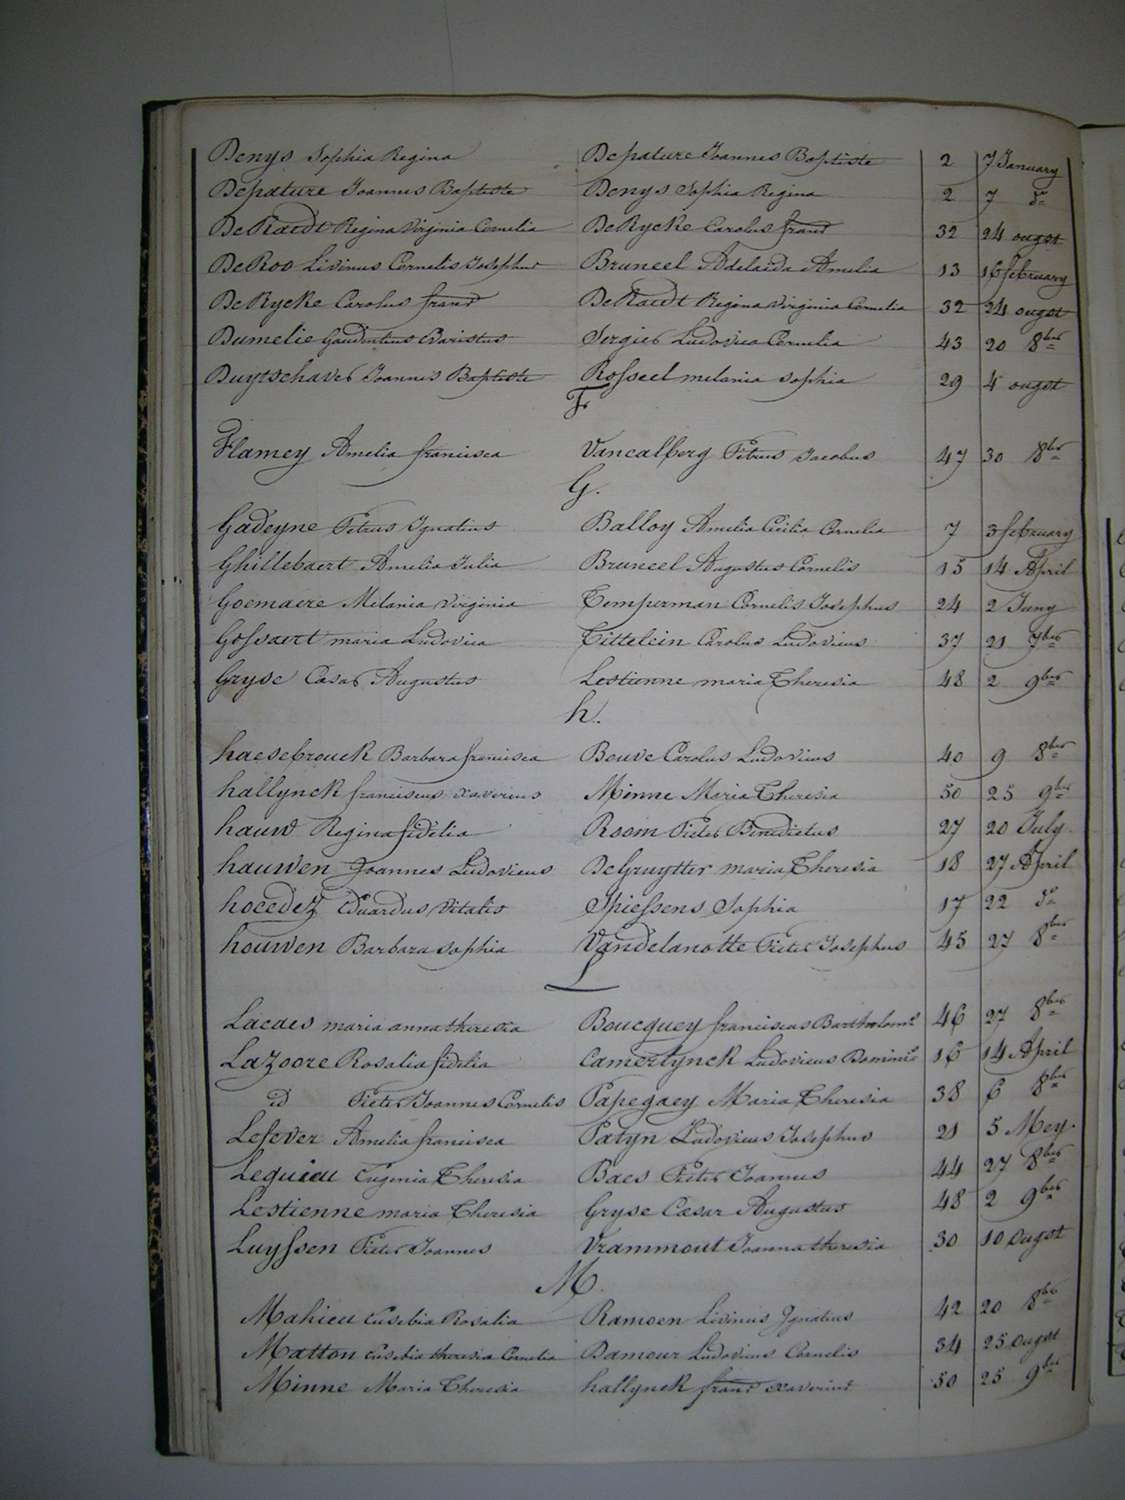 Denys Sophia Regina Depature Joannes Baptiste 2 7 January
Depature Joannes Baptiste Denys Sophia Regina 2 7 do
DeRaedt Regina Virginia Cornelia DeRycke Carolus franc 32 24 ougst
DeRoo Livinus Cornelis Josephus Bruneel Adelaida Amelia 13 16 february
DeRycke Carolus franc DeRaedt Regina Virginia Cornelia 32 24 ougst
Dumelie Gaudentius Evaristus Sergier Ludovica Cornelia 43 20 8ber
Duytschaver Joannes Baptiste Rosseel melania Sophia 29 4 ougst
F
Flamey Amelia francisca Vancalberg Petrus Jacobus 47 30 8ber
G.
Gadeyne Petrus Ignatius Balloy Amelia Cecilia Cornelia 7 3 february
Ghillebaert Amelia Julia Bruneel Augustus Cornelis 15 14 April
Goemaere Melania Virginia Temperman Cornelis Josephus 24 2 Juny
Gossaert maria Ludovica Tittelein Carolus Ludovicus 37 21 7ber
Gryse Cæsar Augustus Lestienne maria Theresia 48 2 9ber
h.
haesebrouck Barbara francisca Bouve Carolus Ludovicus 40 9 8ber
hallynck franciscus xaverius Minne Maria Theresia 50 25 9ber
hauw Regina fidelia Room Pieter Benedictus 27 20 July.
hauwen Joannes Ludovicus DeGruytter maria Theresia 18 27 April
hocedez Eduardus Vitalis Spiessens Sophia 17 22 do
houwen Barbara Sophia Vandelanotte Pieter Josephus 45 27 8ber
L
Lacaes maria anna theresia Boucquey franciscus Bartholome 46 27 8ber
Lazoore Rosalia fidelia Camerlynck Ludovicus Dominic 16 14 April
id Pieter Joannes Cornelis Papegaey Maria Theresia 38 6 8ber
Lefever Amelia francisca Patyn Ludovicus Josephus 21 5 Mey.
Lequieu Eugenia Theresia Baes Pieter Joannes 44 27 8ber
Lestienne maria Theresia Gryse Cæsar Augustus 48 2 9ber
Luyssen Pieter Joannes Vrammout Joanna theresia 30 10 Ougst
M.
Mahieu Eusebia Rosalia Ramoen Livinus Ignatius 42 20 8ber
Matton Eusebia theresia Cornelia Damour Ludovicus Cornelis 34 25 Ougst
Minne Maria Theresia hallynck franc xaverius 50 25 9ber